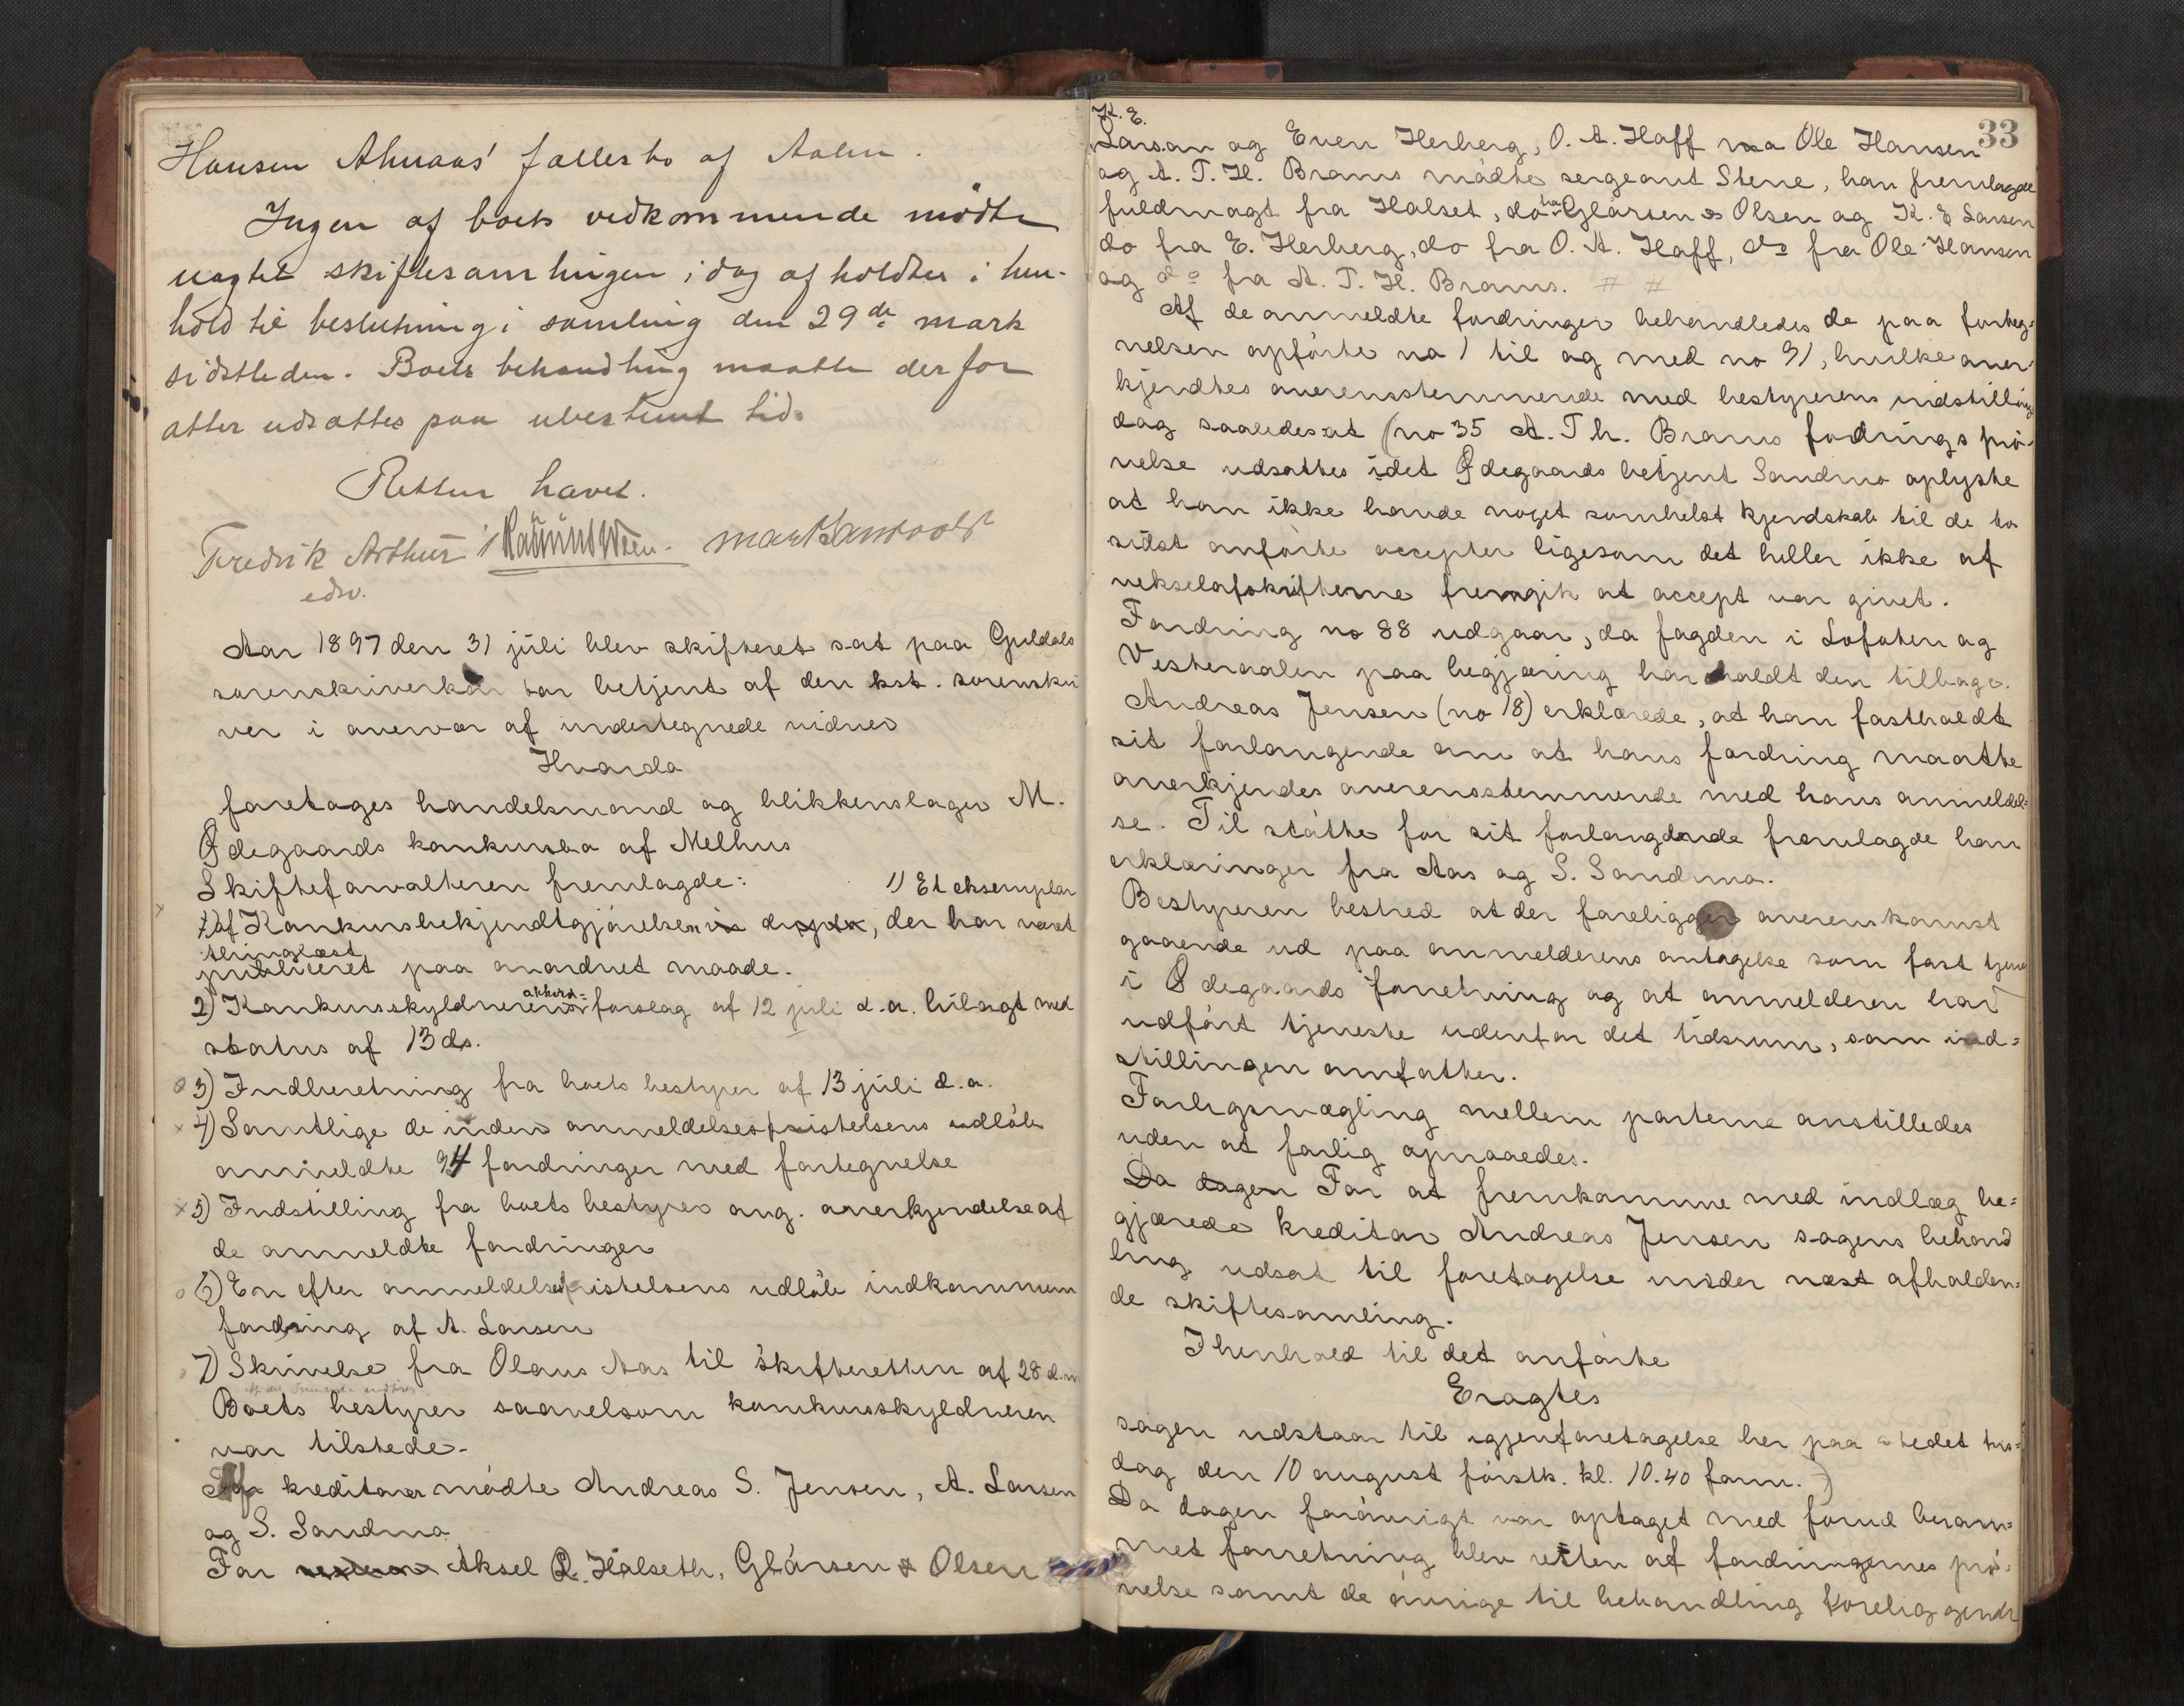 Hansen Ahuaas' fællesbo af Aalen.
Ingen af boets vedkommende mødte
uagtet skiftesamlingen idag afholdtes i hen-
hold til beslutning i samling den 29de marts
sidstleden. Boets behandling maatte derfor
atter udsættes paa ubestemt tid.
Retten hævet.
Fredrik Arthur
edv.
Aar 1897 den 31 juli blev skifteret sat paa Guldals
sorenskriverkontor betjent af den kst. sorenskri
ver i overvær af undertegnede vidner
Hvorda
foretoges handelsmand og blikkenslager M.
Ødegaards konkursbo af Melhus
Skifteforvalteren fremlagde: 1) Et eksemplar
af Konkursbekjendtgjørelsen, der har været
thinglæst
publiceret paa anordnet maade.
akkord=
2) Konkursskyldnerens forslag af 12 juli d.a. bilagt med
status af 13 ds.
3) Indberetning fra boets bestyrer af 13 juli d.a.
4) Samtlige de inden anmeldelsesfristelsens udløb
anmeldte 94 fordringer med fortegnelse
5) Indstilling fra boets bestyrer ang. anerkjendelse af
de anmeldte fordringer
6) En efter anmeldelsesfristelsens udløb indkommen
fordring af A. Larsen
7) Skrivelse fra Olaus Aas til skifteretten af 28 d.m
Boets bestyrer saavelsom konkursskyldneren
var tilstede.
Af kreditorer mødte Andreas S. Jensen, A. Larsen
og S. Sandmo
For Aksel R. Halseth, Glørsen & Olsen
33
K. E.
Larsen og Even Herberg, O. A. Hoff Ole Hansen
og A. T. H. Brams mødte sergeant Stene, han fremlagde
fuldmagt fra Halset, do fra Glørsen & Olsen og K. E Larsen
do fra E. Herberg, do fra O. A. Hoff, do fra Ole Hansen
og do fra A. T. H. Brams. # #
Af de anmeldte fordringer behandledes de paa forteg=
nelsen opførte no 1 til og med no 91, hvilke aner=
kjendtes overensstemmende med bestyrerens indstilling
dog saaledes at (no 35 A. Th. Brams fordrings prø-
velse udsattes idet Ødegaards betjent Sandmo oplyste
at han ikke havde noget somhelst kjendskab til de to
sidst anførte accepter ligesom det heller ikke af
vekselafskrifterne fremgik at accept var givet.
Fordring no 88 udgaar, da fogden i Lofoten og
Vesteraalen paa begjæring har holdt den tilbage.
Andreas Jensen (no 18) erklærede, at han fastholdt
sit forlangende om at hans fordring maatte
anerkjendes overensstemmende med hans anmeldel=
se. Til støtte for sit forlangende fremlagde han
erklæringer fra Aas og S. Sandmo.
Bestyreren bestred at der foreligger overenskomst
gaaende ud paa anmelderens antagelse som fast tjener
i Ødegaards forretning og at anmelderen har
udført tjeneste udenfor det tidsrum, som ind=
stillingen omfatter.
Forligsmægling mellem parterne anstilledes
uden at forlig opnaaedes.
Da dagen For at fremkomme med indlæg be=
gjærede kreditor Andreas Jensen sagens behand
ling udsat til foretagelse under næst afholden=
de skiftesamling.
I henhold til det anførte
Eragtes
sagen udstaar til igjenforetagelse her paa stedet tirs=
dag den 10 august førstk. kl. 10.40 form.)
Da dagen forøvrigt var optaget med forud beram=
met forretning blev retten af fordringernes prø=
velse samt de øvrige til behandling foreliggende